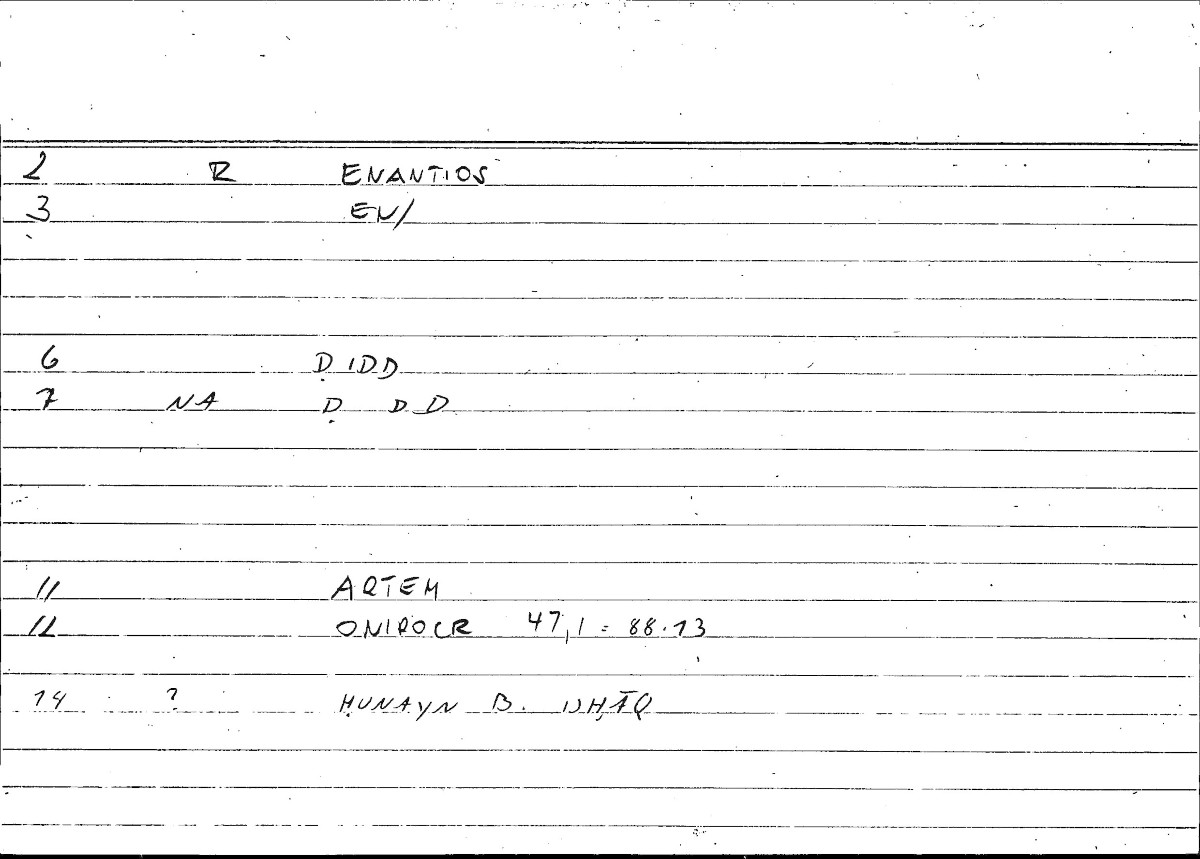 2 R ENANTIOS
3 EN/
6 ḌIDD
7 NA Ḍ DD
11 ARTEM
12 ONIROCR 47,1 = 88.13
14 ? ḤUNAYN B. ISḤĀQ